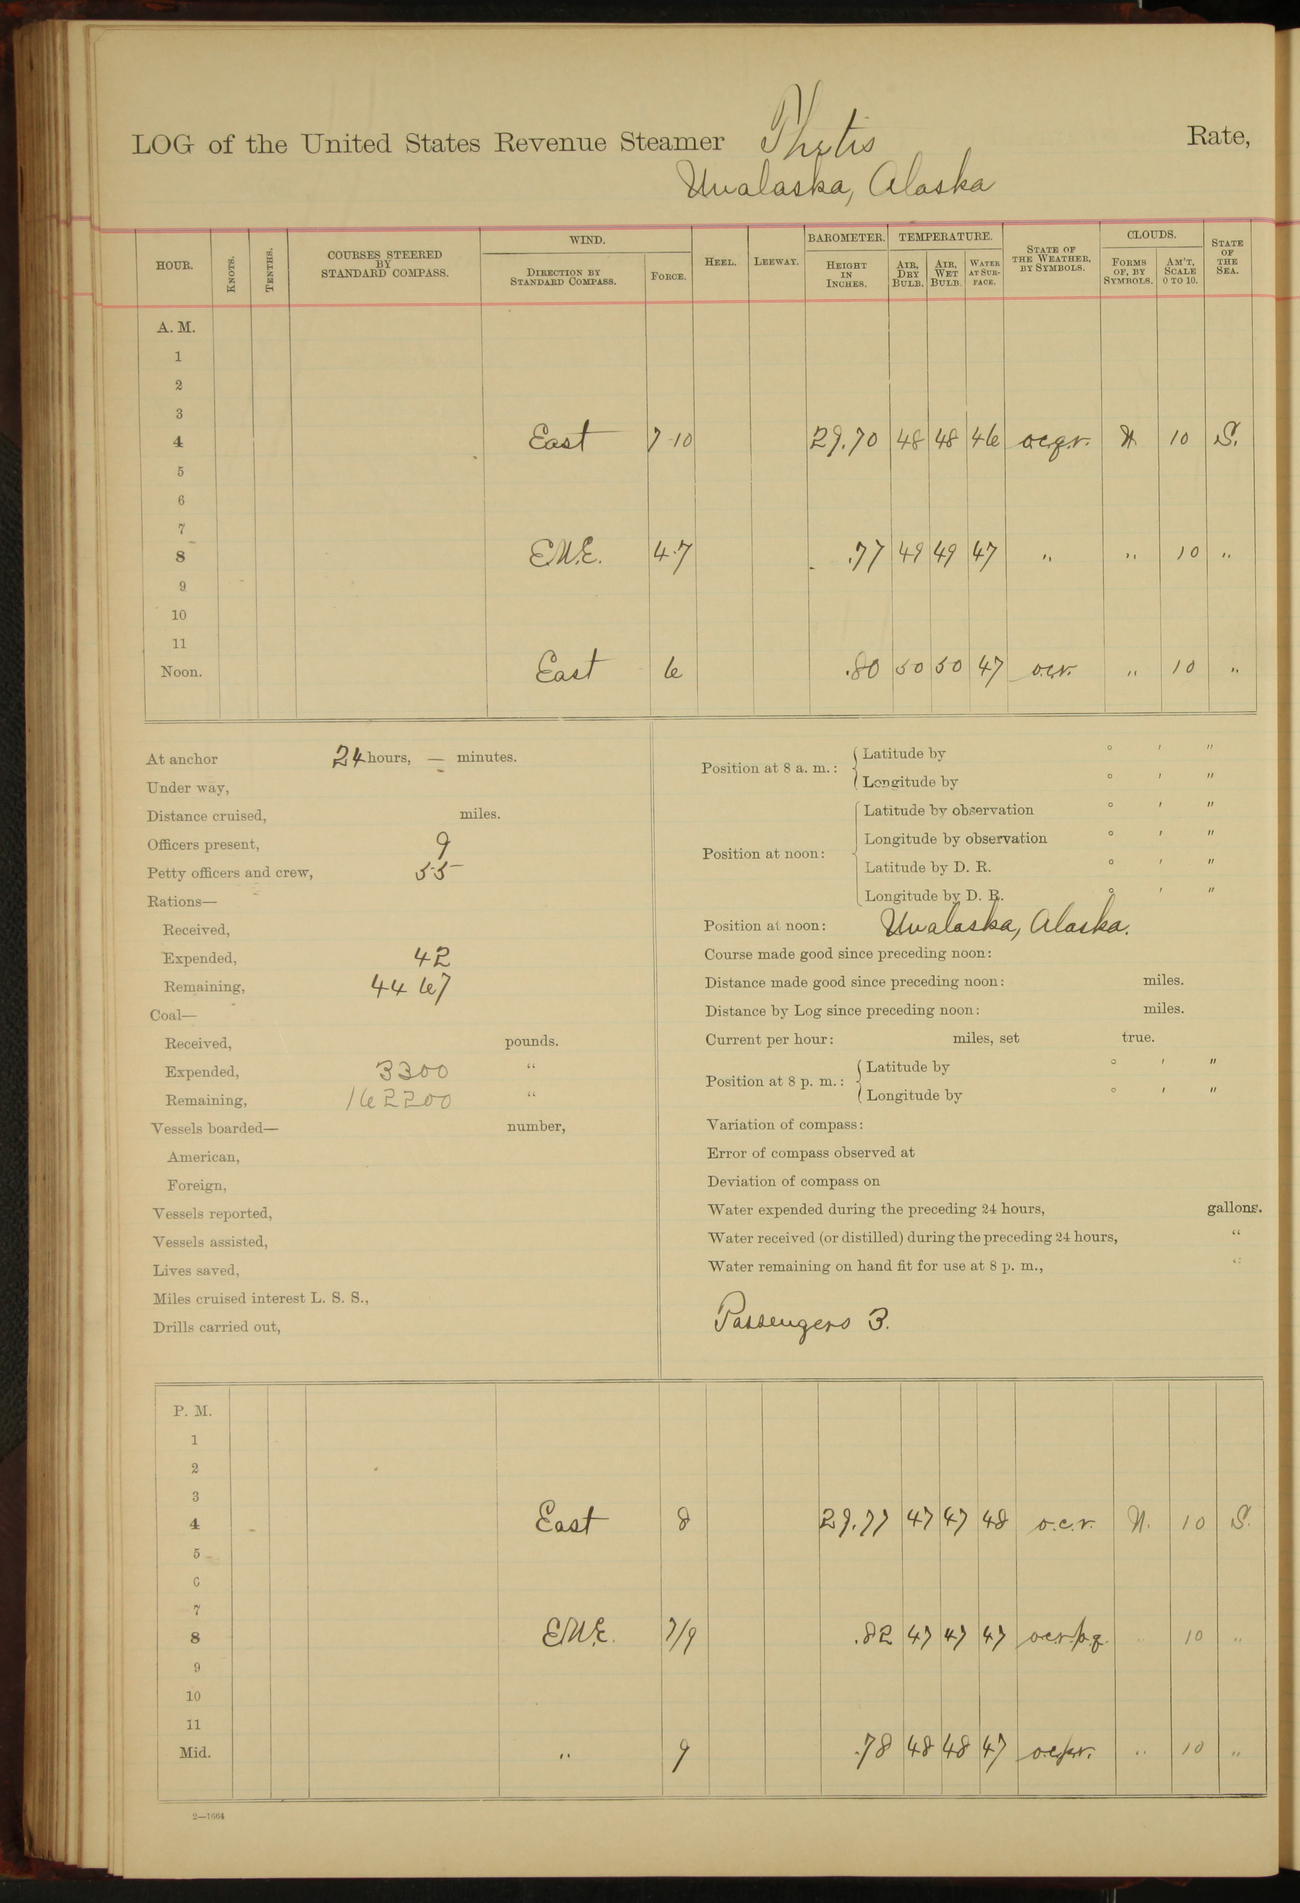 LOG of the United States Revenue Steamer Thetis Rate,
Unalaska, Alaska
HOUR. KNOTS. TENTHS. COURSES STEERED BY STANDARD COMPASS. WIND. DIRECTION BY STANDARD COMPASS. FORCE. HEEL. LEEWAY. BAROMETER. HEIGHT IN INCHES. TEMPERATURE. AIR, DRY BULB. AIR, WET BULB. WATER AT SURFACE. STATE OF THE WEATHER, BY SYMBOLS. CLOUDS. FORMS OF, BY SYMBOLS. AM'T, SCALE 0 TO 10. STATE OF THE SEA.
A. M.
1
2
3
4 East 7-10 29.70 48 48 46 o.c.q.r. N 10 S.
5
6
7
8 E.N.E. 4.7 .77 49 49 47 " " 10 "
9
10
11
Noon. East 6 .80 50 50 47 o.c.r. " 10 "
At anchor 24 hours, — minutes.
Under way,
Distance cruised, miles.
Officers present, 9
Petty officers and crew, 55
Rations—
Received,
Expended, 42
Remaining, 4467
Coal—
Received, pounds.
Expended, 3300 "
Remaining, 162200 "
Vessels boarded— number,
American,
Foreign,
Vessels reported,
Vessels assisted,
Lives saved,
Miles cruised interest L. S. S.,
Drills carried out,
Position at 8 a. m.: Latitude by ° ′ ″
Longitude by ° ′ ″
Position at noon: Latitude by observation ° ′ ″
Longitude by observation ° ′ ″
Latitude by D. R. ° ′ ″
Longitude by D. R. ° ′ ″
Position at noon: Unalaska, Alaska.
Course made good since preceding noon:
Distance made good since preceding noon: miles.
Distance by Log since preceding noon: miles.
Current per hour: miles, set true.
Position at 8 p. m.: Latitude by ° ′ ″
Longitude by ° ′ ″
Variation of compass:
Error of compass observed at
Deviation of compass on
Water expended during the preceding 24 hours, gallons.
Water received (or distilled) during the preceding 24 hours, "
Water remaining on hand fit for use at 8 p. m., "
Passengers 3.
P. M.
1
2
3
4 East 8 29.77 47 47 48 o.c.r. N. 10 S.
5
6
7
8 E.N.E. 7/9 .82 47 47 47 " 10 "
9
10
11
Mid. " 9 .78 48 48 47 " 10 "
2—1664